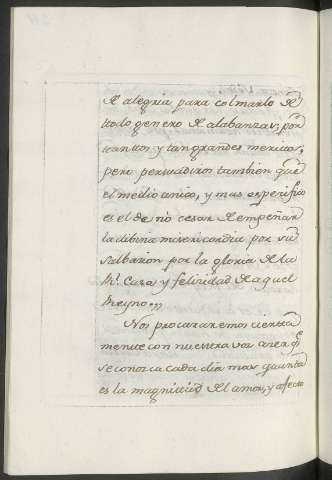 de alegria para colmarlo de
todo genero de alabanzas, por
tantos y tan grandes meritos,
pero persuadiros tambien que
el medio unico, y mas expesifico
es el de no cesar de empeñar
la dibina misericordia por su
salbasion por la gloria de la
Rl. Casa, y felisidad de aquel
Reyno.
Nos procuraremos cierta
mente con nuestra voz aser qe
se conosca cada dia mas quanta
es la magnitud del amor, y afecto